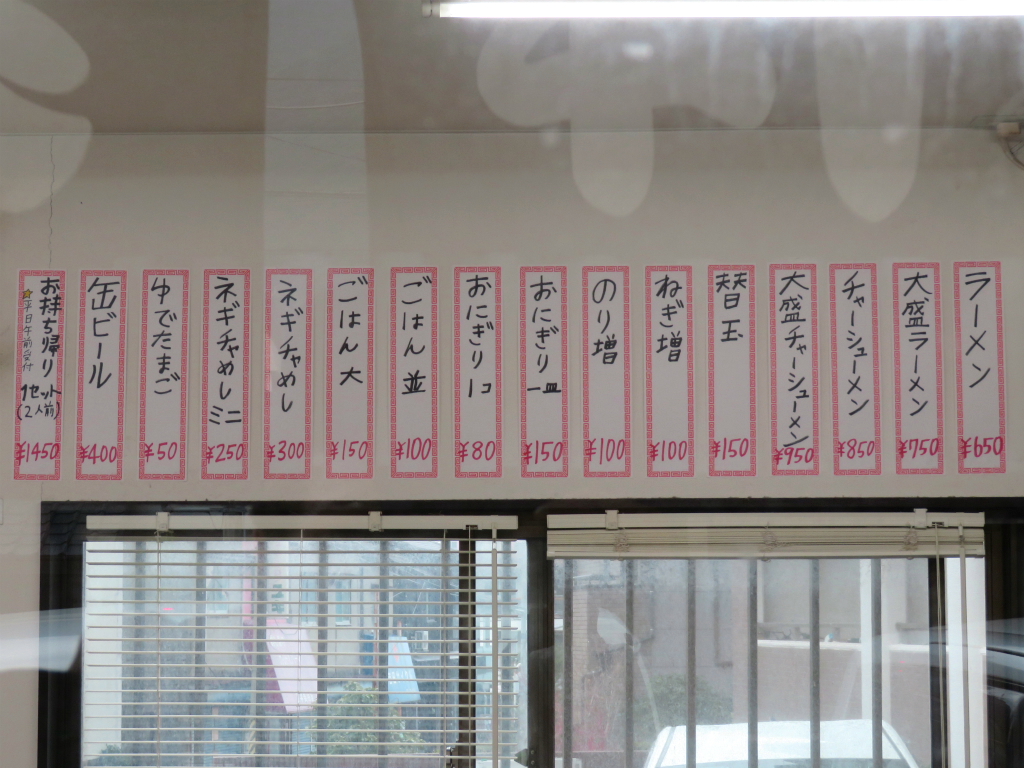 ラーメン
¥650
大盛ラーメン
¥750
チャーシューメン
¥850
大盛チャーシューメン
¥950
替玉
¥150
ねぎ増
¥100
のり増
¥100
おにぎり一皿
¥150
おにぎり1コ
¥80
ごはん並
¥100
ごはん大
¥150
ネギチャめし
¥300
ネギチャめしミニ
¥250
ゆでたまご
¥50
缶ビール
¥400
お持ち帰り1セット
(2人前)
☆平日午前受付
¥1450